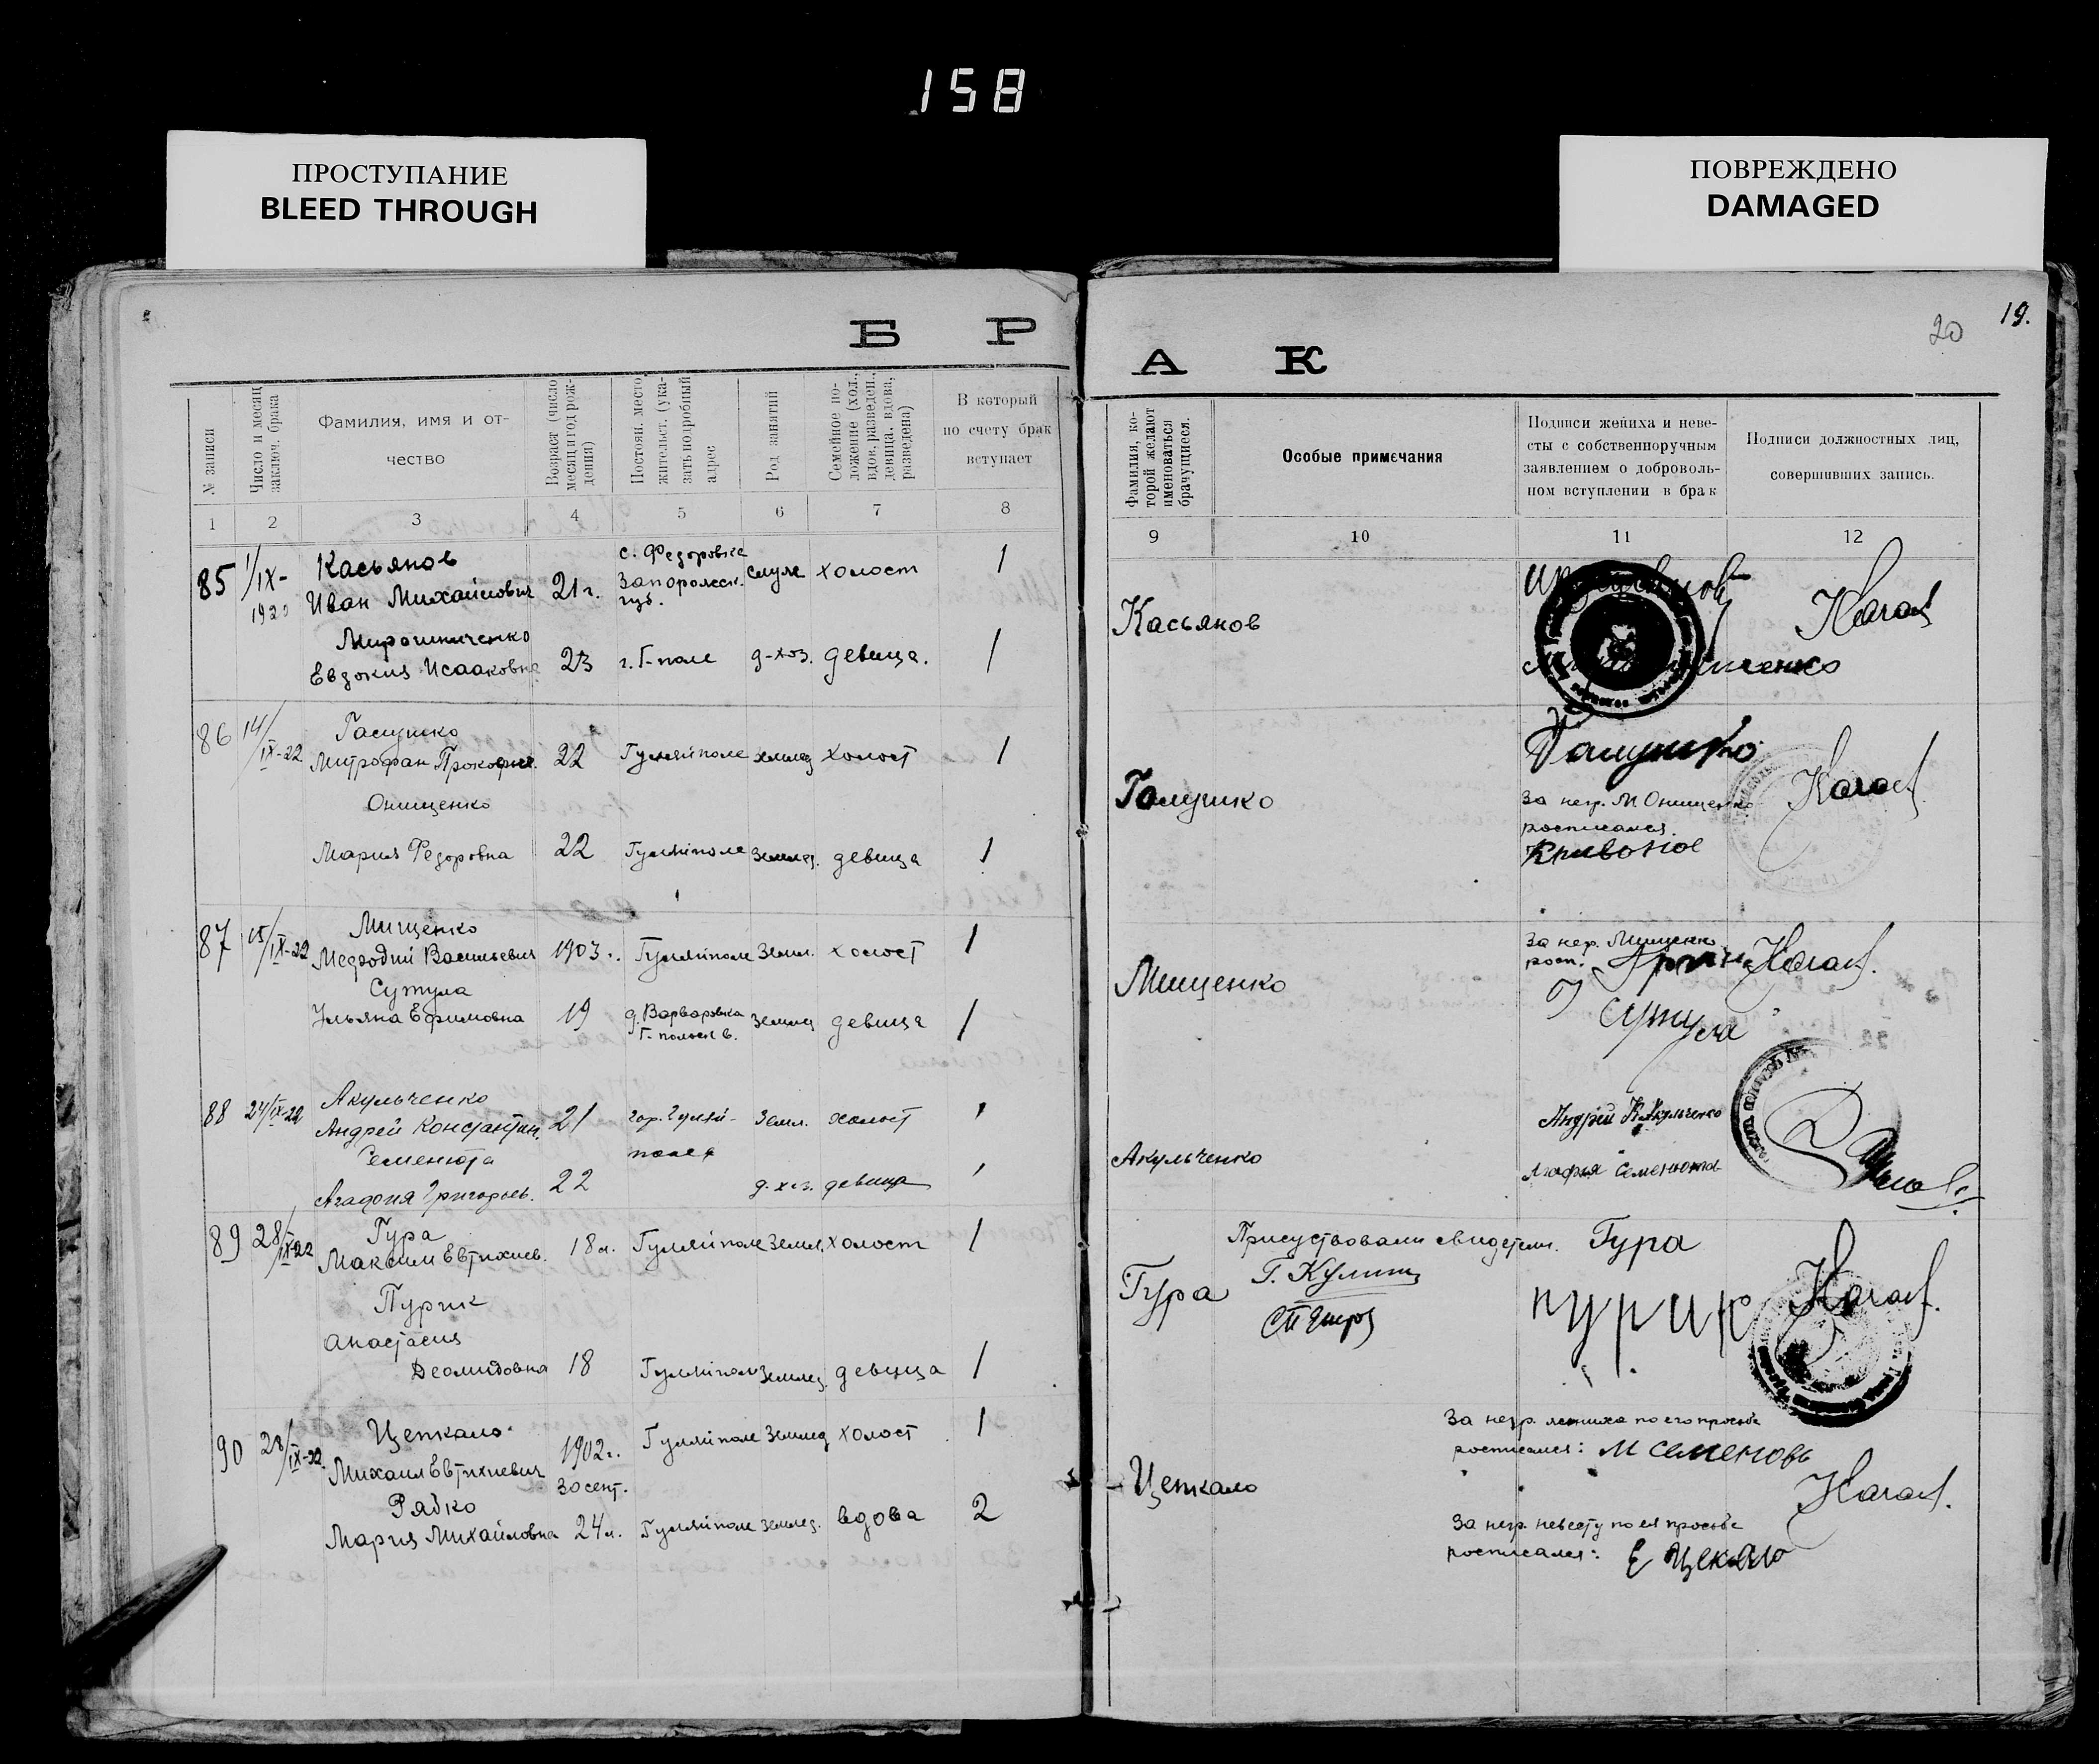 158
ПРОСТУПАНИЕ
BLEED THROUGH
ПОВРЕЖДЕНО
DAMAGED
19.
20
Б Р А К
№ записи
Число и месяц
заключ. брака
Фамилия, имя и от-
чество
Возраст (число
месяц и год рож-
дения)
Постоян. место
жительст. (ука-
зать подробный
адрес
Род занятий
Семейное по-
ложение (хол.,
вдов. разведен.,
девица, вдова,
разведена)
В который
по счету брак
вступает
Фамилия, ко-
торой желают
именоваться
брачущиеся.
Особые примечания
Подписи жениха и неве-
сты с собственноручным
заявлением о доброволь-
ном вступлении в брак
Подписи должностных лиц,
совершивших запись.
1 2 3 4 5 6 7 8 9 10 11 12
85 1/IX-
Касьянов
Иван Михайлович 21 г. с. Федоровка
Запорожск.
губ. служ холост 1
Мирошниченко
Евдокия Исааковна 23 г. Г-поле д-хоз. девица. 1
Касьянов
86 14/IX-22
Галушко
Митрофан Прокофие. 22 Гуляйполе землед холост 1
Онищенко
Мария Федоровна 22 Гуляйполе землед. девица 1
Галушко
Галушко
За негр. М Онищенко
росписался.
Кривонос
87 15/IX-22
Мищенко
Мефодий Васильевич 1903 г. Гуляйполе Земл. холост 1
Сутула
Ульяна Ефимовна 19 д. Варваровка
Г-польск в. землед девица 1
Мищенко
За нер. Мищенко
росп.
Сутула
88 24/IX-22
Акульченко
Андрей Константин. 21 гор. Гуляй-
поле Земл. холост 1
Семенюта
Агафия Григорьев. 22 д. хоз. девица 1
Акульченко
Андрей К Акульченко
Агафья Семенюта
89 28/IX-22
Гура
Максим Евтихиев. 18 л. Гуляйполе Земл. холост 1
Пурик
Анастасия
Деомидовна 18 Гуляйполе Землед. девица 1
Гура
Присуствовали свидетели.
Гура
пурик
90 28/IX-22
Цепкало
Михаил Евтихиевич 1902 г.
30 сент. Гуляйполе Землед холост 1
Рябко
Мария Михайловна 24 л. Гуляйполе землед. вдова 2
Цепкало
За негр. жениха по его просьбе
росписался: М Семеновъ
За негр. невесту по ея просьбе
росписался: Е Цекало